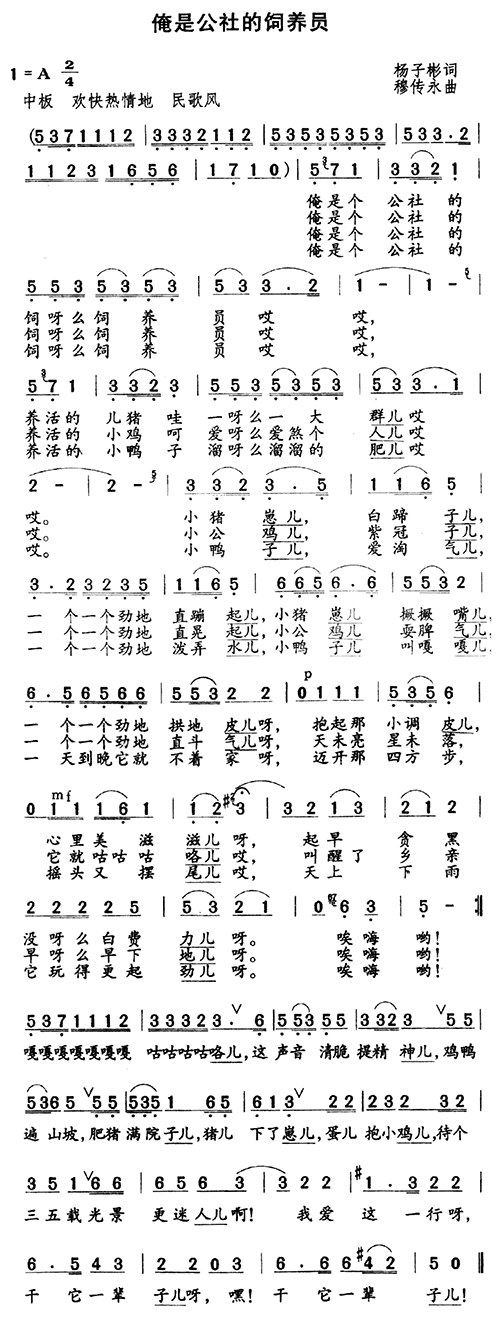 俺是公社的饲养员
1=A 2/4
杨子彬词
穆传永曲
中板 欢快热情地 民歌风
(5371112 | 3332112 | 53535353535 | 533·2 |
1123 1656 | 1710) | 5 7 1 | 3321 |
俺是个 公社 的
俺是个 公社 的
俺是个 公社 的
俺是个 公社 的
553 5353 | 53 3·2 | 1 - | 1 - |
饲呀么饲 养 员 哎 哎,
饲呀么饲 养 员 哎 哎,
饲呀么饲 养 员 哎 哎,
5 7 1 | 3323 | 553 5353 | 533·1 |
养活的 儿猪 哇 一呀么一 大 群儿哎
养活的 小鸡 呵 爱呀么爱煞个 人儿哎
养活的 小鸭 子 溜呀么溜溜的 肥儿哎
2 - | 2 - | 332 3·5 | 1165 |
哎。 小猪 崽儿, 白蹄 子儿,
哎。 小公 鸡儿, 紫冠 子儿,
哎。 小鸭 子儿, 爱淘 气儿,
3·23235 | 1165 | 6656·6 | 5532 |
一 个一个劲地 直蹦 起儿,小猪 崽儿 撅撅 嘴儿,
一 个一个劲地 直晃 起儿,小公 鸡儿 耍脾 气儿,
一 个一个劲地 泼弄 水儿,小鸭 子儿 叫嘎 嘎儿,
p
6·56566 | 5532 2 | 0111 | 5356 |
一 个一个劲地 拱地 皮儿呀, 抱起那 小调 皮儿,
一 个一个劲地 直斗 气儿呀, 天未亮 星未 落,
一 天到晚它就 不着 家 呀, 迈开那 四方 步,
mf
011 161 | 12 3 | 3213 | 212 |
心里美 滋 滋儿呀, 起早 贪黑
它就咕咕 咕 咯儿哎, 叫醒了 乡 亲
摇头又 摆 尾儿哎, 天上 下雨
22225 | 5321 | 063 | 5 - :‖
没呀么白费 力儿 呀。 唉嗨 哟!
早呀么早下 地儿 呀。 唉嗨 哟!
它玩得更起 劲儿 呀。 唉嗨 哟!
5371112 | 33323·∨6 | 55355 | 3323∨55 |
嘎嘎嘎嘎嘎嘎嘎 咕咕咕咕咯儿,这 声音 清脆 提精 神儿,鸡鸭
5365∨55 | 5351 65 | 613∨22 | 232 32 |
遍 山坡,肥猪 满院 子儿,猪儿 下了崽儿,蛋儿 抱小鸡儿,待个
351∨66 | 656 3 | 3 22 | #1·322 |
三五载光景 更迷人儿啊! 我爱 这 一行呀,
6·543 | 2203 | 6·66#42 | 50‖
干 它一辈 子儿呀,嘿! 干 它一辈 子儿!